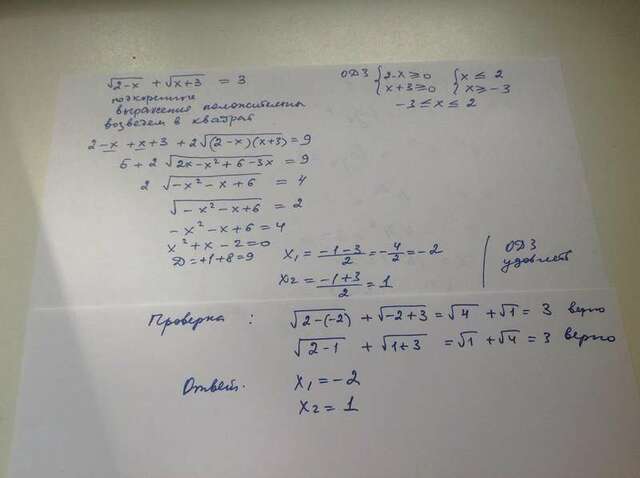 √(2-x) + √(x+3) = 3
ОДЗ {2-x ≥ 0 {x ≤ 2
{x+3 ≥ 0 {x ≥ -3
-3 ≤ x ≤ 2
подкоренные
выражения положительны
возведем в квадрат
2-x+x+3+2√((2-x)(x+3)) = 9
5+2√(2x-x²+6-3x) = 9
2√(-x²-x+6) = 4
√(-x²-x+6) = 2
-x²-x+6 = 4
x²+x-2=0
D=+1+8=9
x₁ = (-1-3)/2 = -4/2 = -2
x₂ = (-1+3)/2 = 1
ОДЗ
удовлет
Проверка: √(2-(-2)) + √(-2+3) = √4 + √1 = 3 верно
√(2-1) + √(1+3) = √1 + √4 = 3 верно
Ответ. x₁ = -2
x₂ = 1